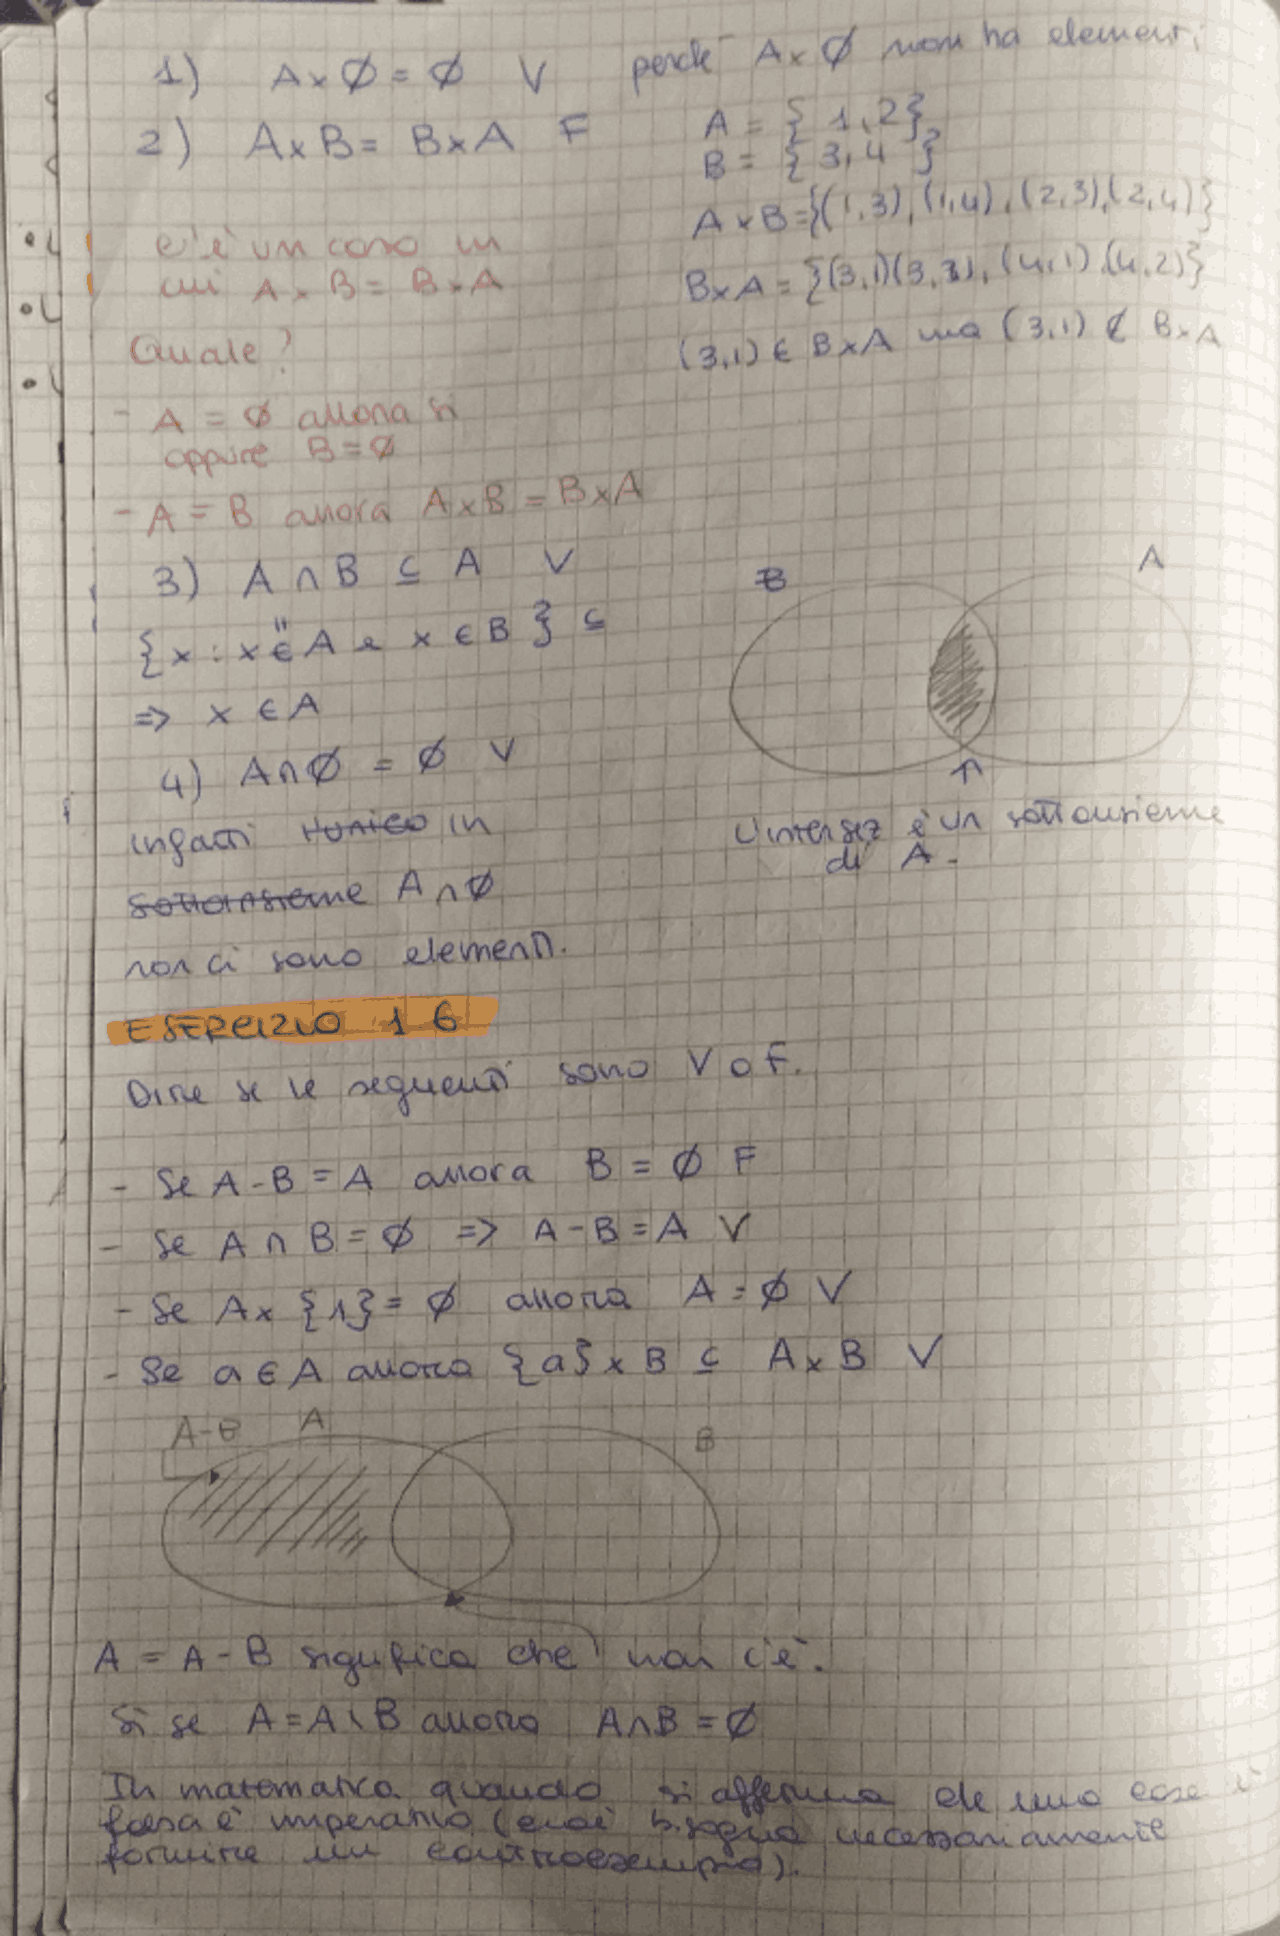 1) A x Ø = Ø V perché A x Ø non ha elementi
2) A x B = B x A F
A = { 1,2}
B = { 3,4 }
A x B = {(1,3),(1,4),(2,3),(2,4)}
B x A = {(3,1)(3,2),(4,1),(4,2)}
(3,1) ∈ B x A ma (3,1) ∉ B x A
c'è un caso in
cui A x B = B x A
Quale?
- A = Ø allora si
oppure B = Ø
- A = B allora A x B = B x A
3) A ∩ B ⊆ A V
{x : x ∈ A e x ∈ B } ⊆
=> x ∈ A
B A
L'intersez è un sottoinsieme
di A.
4) A ∩ Ø = Ø V
infatti l'unico in
sottoinsieme A ∩ Ø
non ci sono elementi.
ESERCIZIO 1 6
Dire se le seguenti sono V o F.
- Se A - B = A allora B = Ø F
- Se A ∩ B = Ø => A - B = A V
- Se A x {1} = Ø allora A = Ø V
- Se a ∈ A allora {a} x B ⊆ A x B V
A-B A B
A = A - B significa che non c'è.
Si se A = A \ B allora A ∩ B = Ø
In matematica quando si afferma che una cosa è
falsa è imperativo (cioè bisogna necessariamente
fornire un controesempio).